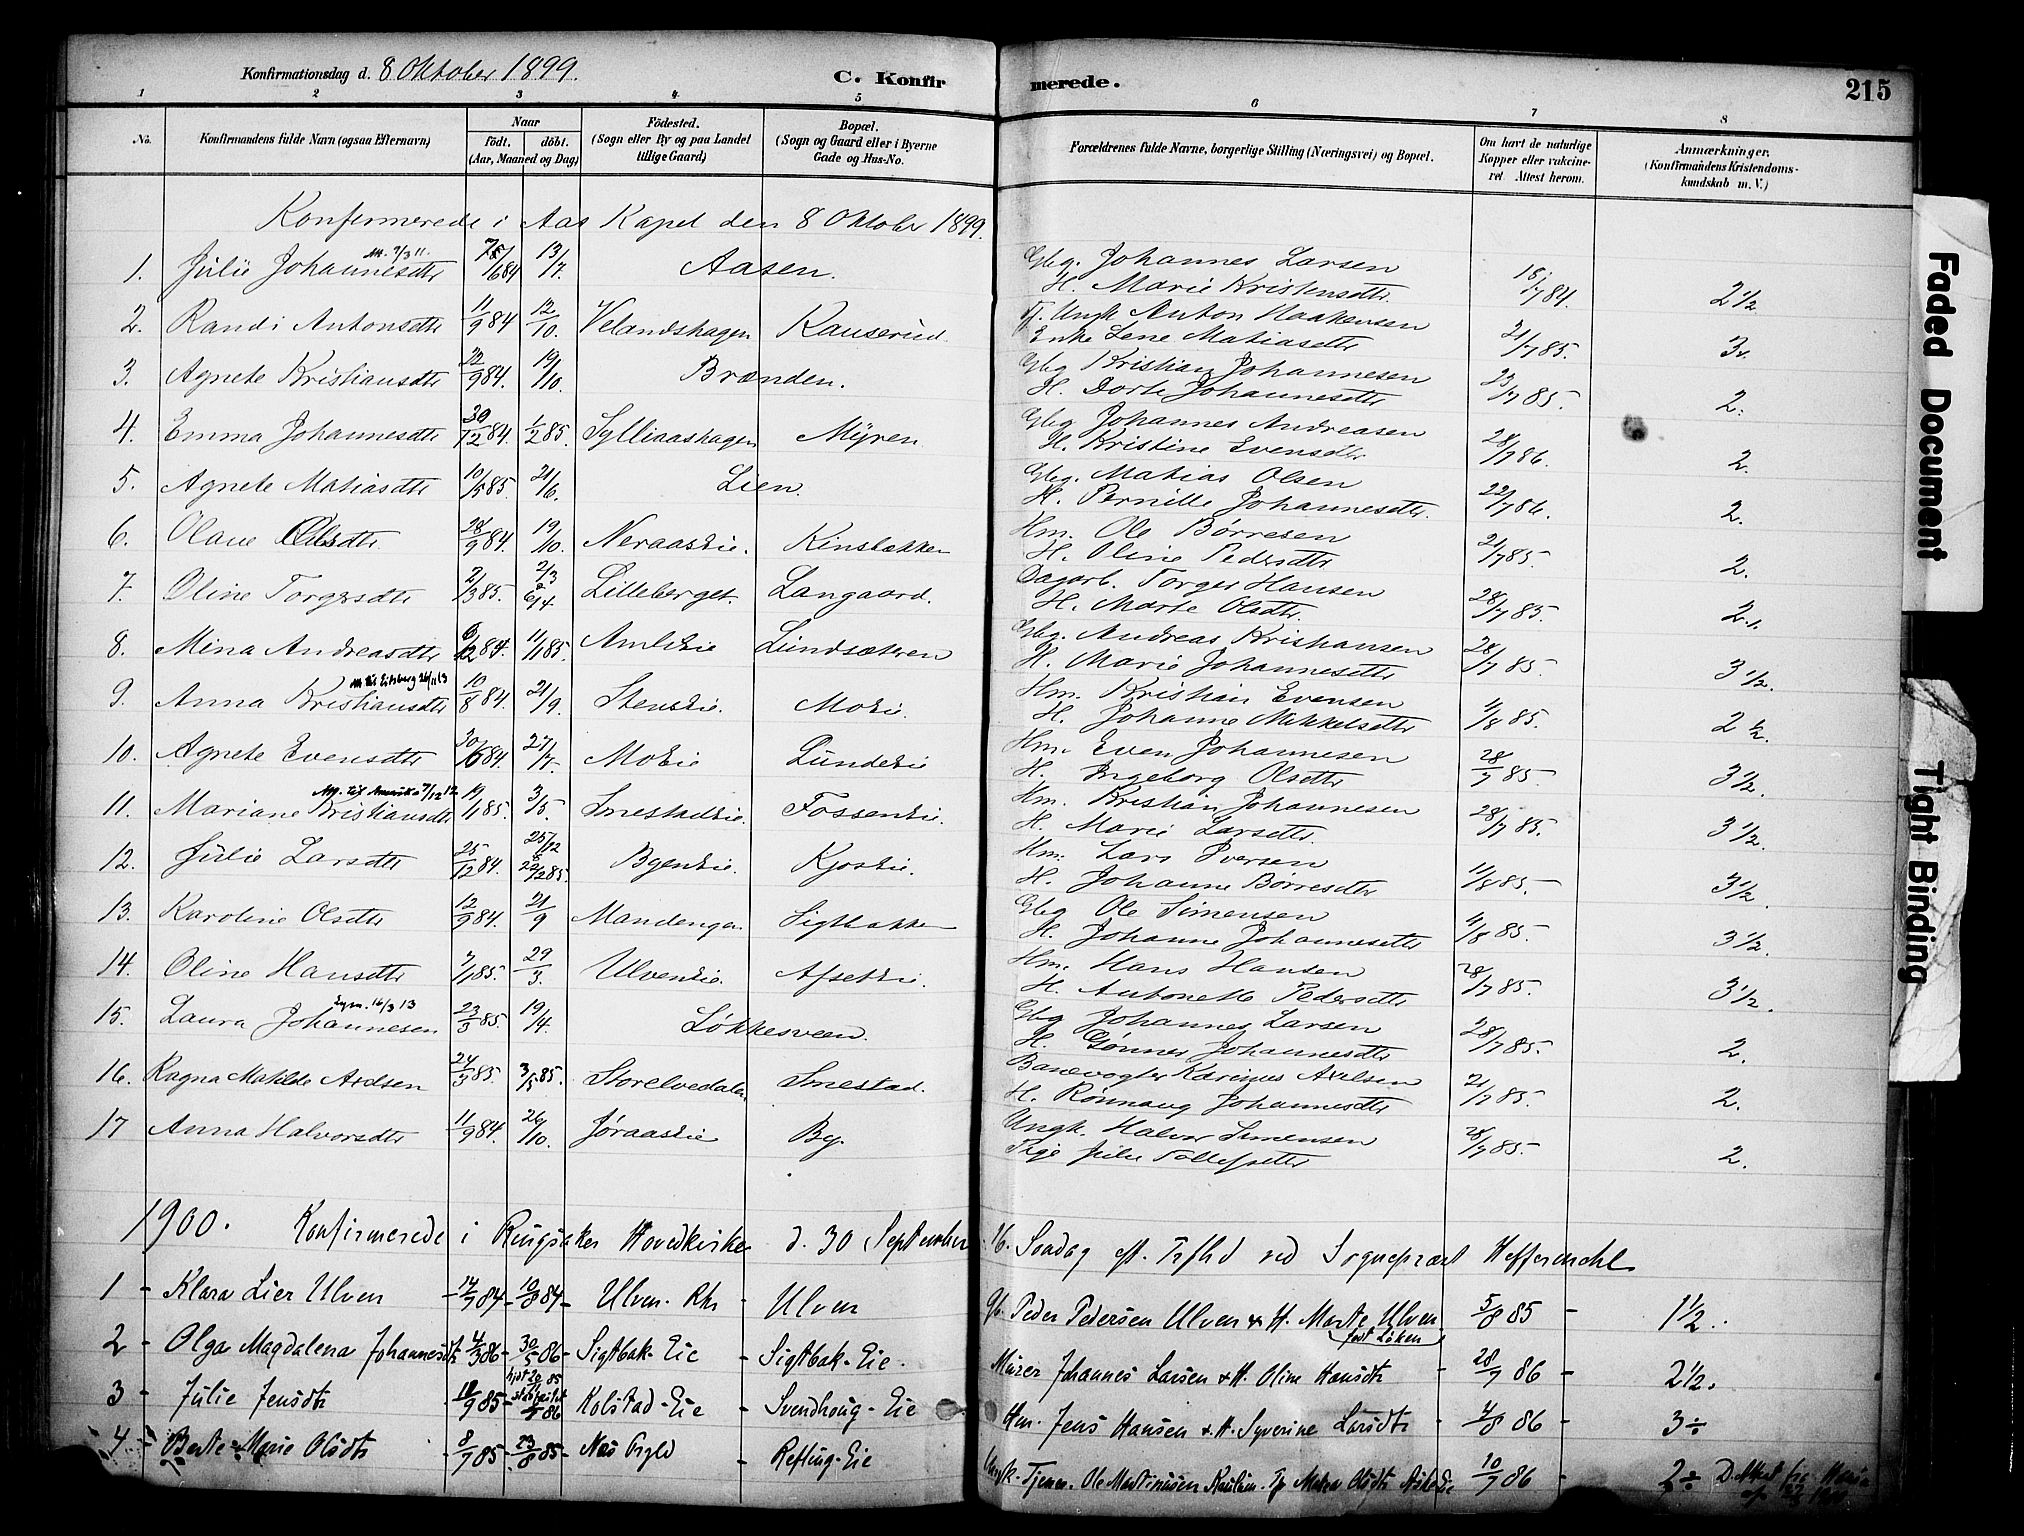 Konfirmationsdag d. 8 Oktober 1899.
C. Konfirmerede.
215
1 2 3 4 5 6 7 8
No.
Konfirmandens fulde Navn (ogsaa Efternavn)
Naar
födt. döbt.
(Aar, Maaned og Dag)
Födested.
(Sogn eller By og paa Landet
tillige Gaard)
Bopæl.
(Sogn og Gaard eller i Byerne
Gade og Hus-No.
Forældrenes fulde Navne, borgerlige Stilling (Næringsvei) og Bopæl.
Om havt de naturlige
Kopper eller vakcine-
ret. Attest herom.
Anmærkninger.
(Konfirmandens Kristendoms-
kundskab m. V.)
Konfirmerede i Aas Kapel den 8 Oktober 1899.
1. Julie Johannesdtr 13/7. Aasen. Gbg. Johannes Larsen
H. Marie Kristensdtr. 18/7 84. 2 1/2
2. Randi Antonsdtr 11/9 84 12/10. Velandshagen Kauserud. Ungk Anton Haakensen
Enke Lene Matiasdtr 21/7 85. 3.
3. Agnete Kristiansdtr 22/9 84. 19/10. Brænden. Gbg Kristian Johannesen
H. Dorte Johannesdtr 23/7 85. 2.
4. Emma Johannesdtr 30/12 84. 1/2 85. Sylliaashagen Myren. Gbg Johannes Andreasen
H. Kristine Evensdtr 28/7 86. 2.
5. Agnete Matiasdtr 10/5 85. 21/6. Lien. Gbg. Matias Olsen
H. Pernille Johannesdtr. 22/7 86. 2.
6. Olave Olsdtr. 28/9 84. 19/10. Neraaseie. Kinsbakken Hm. Ole Børresen
H. Oline Pedersdtr 21/7 85. 2.
7. Oline Torgersdtr 2/3 85. 2/3 & 6/4 Lilleberget. Langaard. Dagarb. Torger Hansen
H. Marte Olsdtr. 28/7 85. 2.
8. Mina Andreasdtr 6/12 84. 11/1 85. Amlieie Lundsætren Gbg. Andreas Kristiansen
H. Marie Johannesdtr 28/7 85. 3 1/2.
9. Anna Kristiansdtr 10/8 84. 21/9. Steneie. Moeie. Hm. Kristian Evensen
H. Johanne Mikkelsdtr 4/8 85. 2 1/2.
10. Agnete Evensdtr 30/6 84. 27/7. Moeie Lundeie Hm. Even Johannesen
H. Ingeborg Olsdtr 28/7 85. 3 1/2.
11. Mariane Kristiansdtr 19/1 85. 3/5. Smestadeie. Fosseneie. Hm. Kristian Johannesen
H. Marie Larsdtr. 28/7 85. 3 1/2.
12. Julie Larsdtr 25/12 84. 25/12 & 22/2 85. Byeneie. Kjoseie. Hm. Lars Iversen
H. Johanne Børresdtr 11/8 85. 3 1/2.
13. Karoline Olsdtr 12/9 84. 21/9 Mandengen Sigtbakken Gbg Ole Simensen
H. Johanne Johannesdtr 4/8 85. 3 1/2.
14. Oline Hansdtr 7/1 85. 29/3. Ulveneie. Afseteie. Hm. Hans Hansen
H. Antonette Pedersdtr 28/7 85. 3 1/2.
15. Laura Johannesen 23/3 85. 19/4. Løkkesveen. Gbg Johannes Larsen
H. Gønner Johannesdtr 28/7 85. 2.
16. Ragna Matilde Axelsen 24/3 85. 3/5 85. Storelvedalen Smestad. Banevogter Karinus Axelsen
H. Rønnaug Johannesdtr 21/7 85. 2.
17 Anna Halvorsdtr 11/9 84. 26/10. Jøraaseie By. Ungk. Halvor Simensen
Pige Julie Tollefsdtr 28/7 85. 2.
1900. Konfirmerede i Ringsaker Hovedkirke d. 30 September 16. Søndag eft. Trefhd ved Sogneprest Hefferm​ehl
1 - Klara Lier Ulven 14/7 84 10/8 84 Ulven. Rkr Ulven Gb. Peder Pedersen Ulven & H. Marte Ulven
født Løken 5/8 85 1 1/2.
2 - Olga Magdalena Johannesdtr 4/3 86 30/5 86 Sigtbak-Eie Sigtbak-Eie. Murer Johannes Larsen & H. Oline Hansdtr 28/7 86 2 1/2.
3 - Julie Jensdtr 18/9 85 Kolstad-Eie Svendhoug-Eie Hm. Jens Hansen & H. Syverine Larsdtr 4/8 86 3 ÷
4 - Berte Marie Olsdtr 8/7 85 23/8 85 Nes Refling-Eie Ungk. Ole Martinusen Olsdtr 10/7 86 2 ÷
Faded Document
Tight Binding